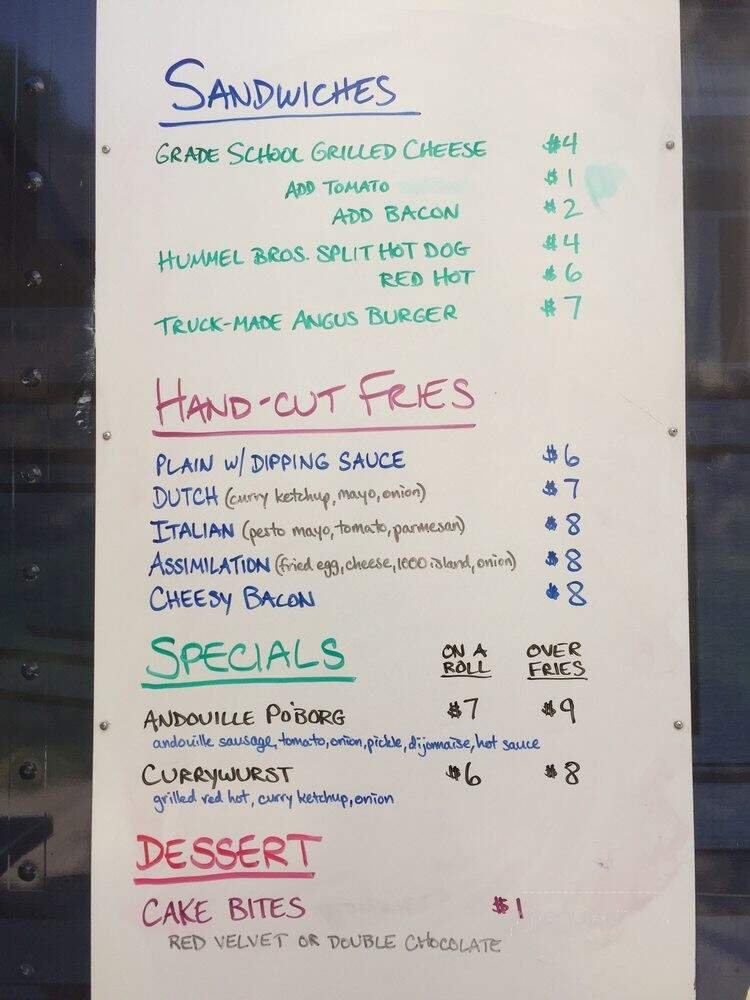 SANDWICHES
GRADE SCHOOL GRILLED CHEESE $4
ADD TOMATO $1
ADD BACON $2
HUMMEL BROS. SPLIT HOT DOG $4
RED HOT $6
TRUCK-MADE ANGUS BURGER $7
HAND-CUT FRIES
PLAIN W/ DIPPING SAUCE $6
DUTCH (curry ketchup, mayo, onion) $7
ITALIAN (pesto mayo, tomato, parmesan) $8
ASSIMILATION (fried egg, cheese, 1000 island, onion) $8
CHEESY BACON $8
SPECIALS ON A ROLL OVER FRIES
ANDOUILLE PO'BORG $7 $9
andouille sausage, tomato, onion, pickle, dijonnaise, hot sauce
CURRYWURST $6 $8
grilled red hot, curry ketchup, onion
DESSERT
CAKE BITES $1
RED VELVET OR DOUBLE CHOCOLATE